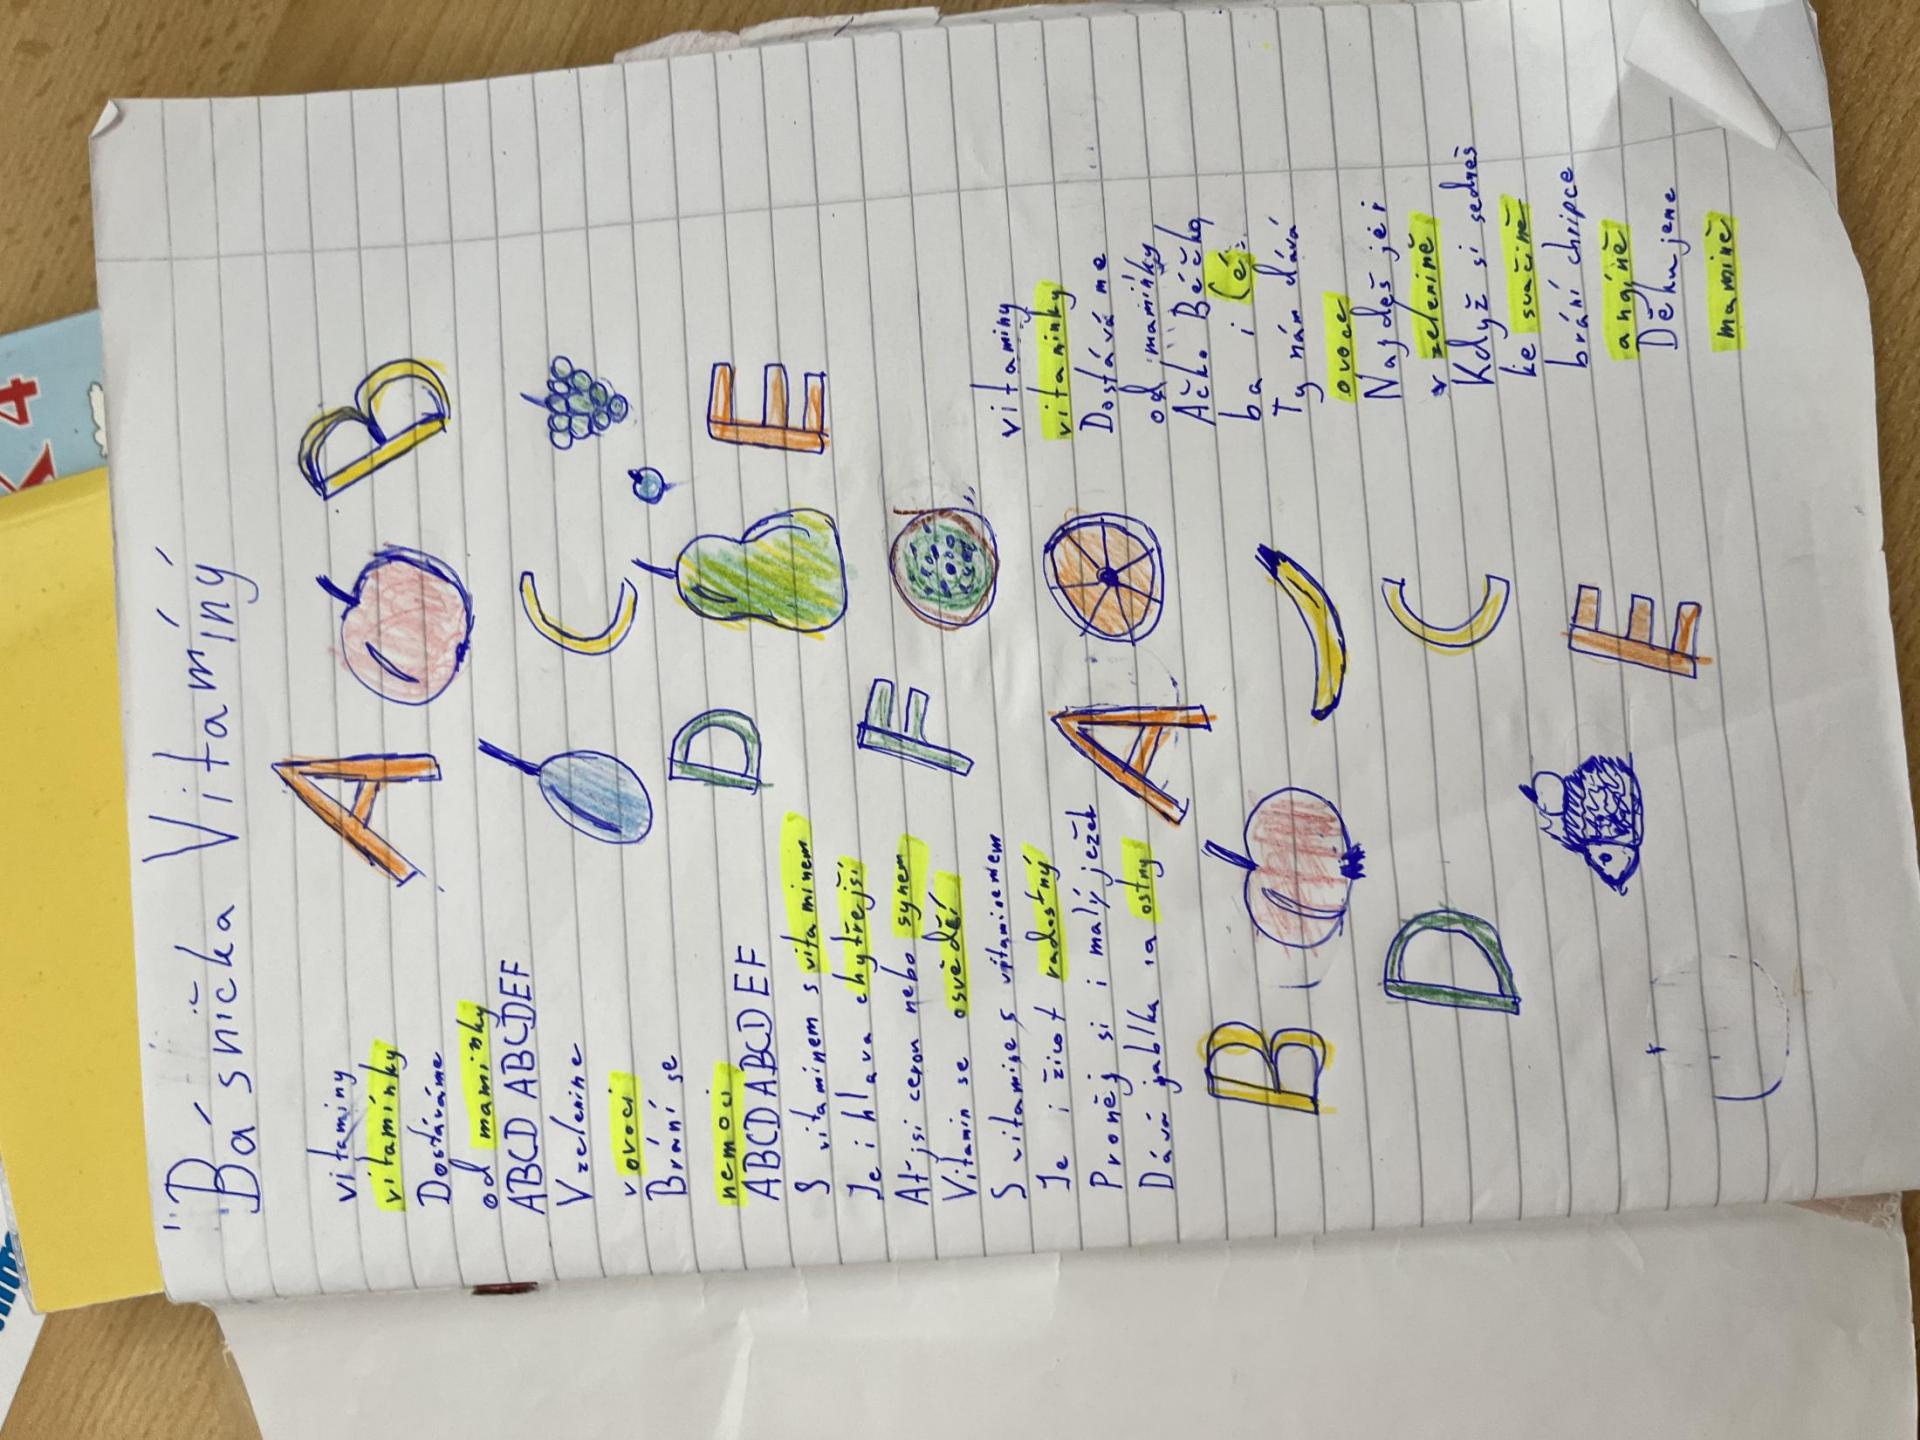 Básnička Vitamíny
vitaminy
vitamínky
Dostáváme
od maminky
ABCD ABCDEF
V zelenine
v ovoci
Brání se
nemoci
ABCD ABCD EF
S vitamínem s vitaminem
Je i hlava chytřejší
Ať jsi cerou nebo synem
Vitamin se osvědčí
S s vitaminem
Je i život radostný
Proněj si i malý ježek
Dává jablka na ostny
A
B
C
D
E
F
A
B
C
D
E
vitaminy
vitaminky
Dostáváme
od maminky
Áčko Béčko
ba i Cé
Ty nám dává
ovoce
Najdeš je i
v zelenině
Když si sedneš
ke svačině
brání chřipce
angíně
Děkujeme
mamině
4